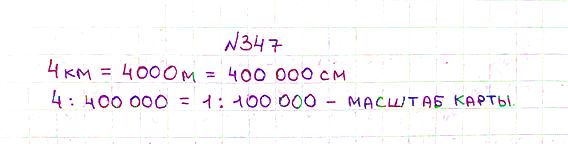 №347
4 км = 4000 м = 400 000 см
4 : 400 000 = 1 : 100 000 – масштаб карты.